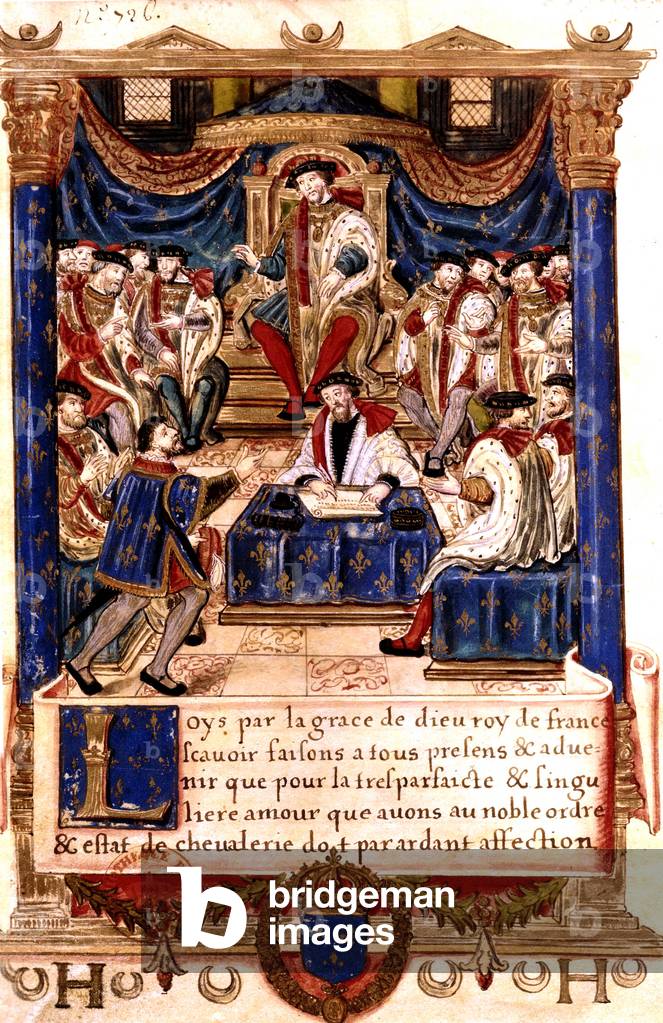 n.º 726.
Loys par la grace de dieu roy de france
scauoir faisons a tous presens & adue=
nir que pour la tresparfaicte & singu
liere amour que auons au noble ordre
& estat de cheualerie dot par ardant affection
b bridgeman
images
H H